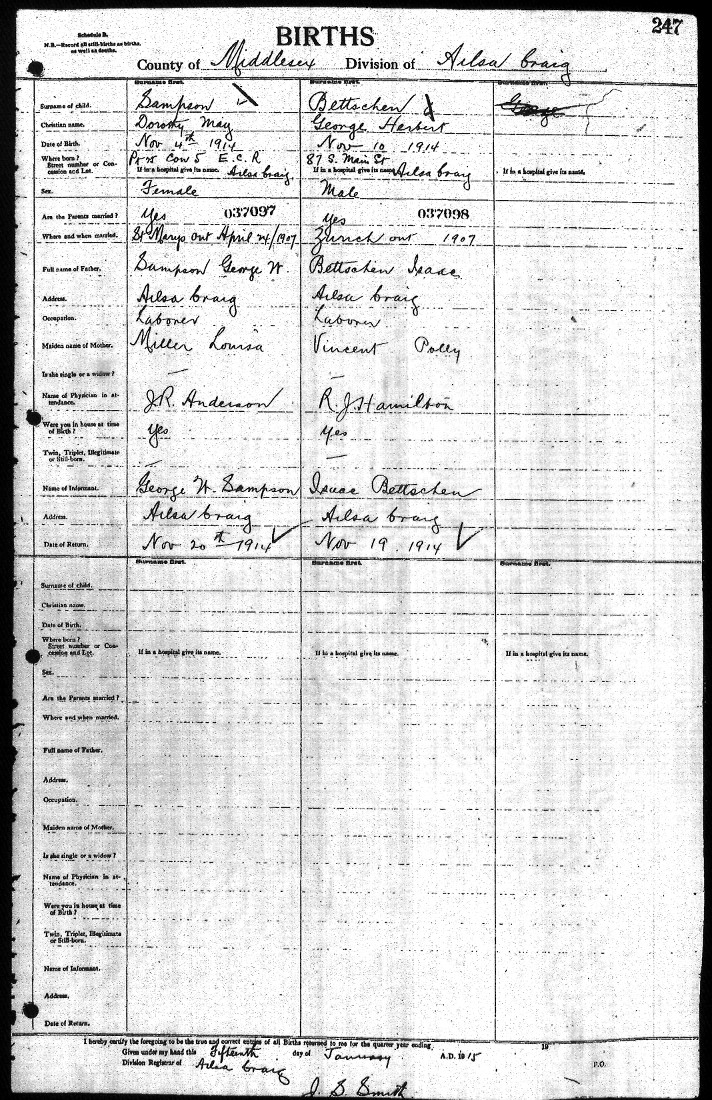 247
Schedule B.
N.B.—Record all still-births as births, as well as deaths.
BIRTHS
County of Middlesex Division of Ailsa Craig
Surname first. Surname first. Surname first.
Surname of child. Sampson Bettschen George
Christian name. Dorothy May George Herbert
Date of Birth. Nov 4th 1914 Nov 10 1914
Where born? Con 5 E.C.R 87 S. Main St
Street number or Concession and Lot. If in a hospital give its name. Ailsa Craig If in a hospital give its name. Ailsa Craig If in a hospital give its name.
Sex. Female Male
Are the Parents married? Yes 037097 yes 037098
Where and when married. St Marys Ont April 24/1907 Zurich Ont 1907
Full name of Father. Sampson George W. Bettschen Isaac
Address. Ailsa Craig Ailsa Craig
Occupation. Laborer Laborer
Maiden name of Mother. Miller Louisa Vincent Polly
Is she single or a widow? — —
Name of Physician in attendance. J.R. Anderson R. J. Hamilton
Were you in house at time of Birth? yes yes
Twin, Triplet, Illegitimate or Still-born. — —
Name of Informant. George W. Sampson Isaac Bettschen
Address. Ailsa Craig Ailsa Craig
Date of Return. Nov 20th 1914 Nov 19. 1914
Surname first. Surname first. Surname first.
Surname of child.
Christian name.
Date of Birth.
Where born?
Street number or Concession and Lot. If in a hospital give its name. If in a hospital give its name. If in a hospital give its name.
Sex.
Are the Parents married?
Where and when married.
Full name of Father.
Address.
Occupation.
Maiden name of Mother.
Is she single or a widow?
Name of Physician in attendance.
Were you in house at time of Birth?
Twin, Triplet, Illegitimate or Still-born.
Name of Informant.
Address.
Date of Return.
I hereby certify the foregoing to be the true and correct entries of all Births returned to me for the quarter year ending 19
Given under my hand this Fifteenth day of January A.D. 1915
Division Registrar of Ailsa Craig P.O.
J. S. Smith